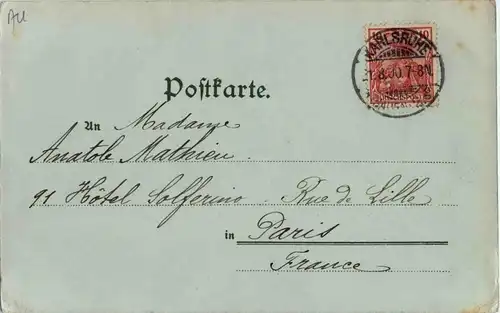 AU
10
KARLSRUHE
7-8N.
Postkarte.
An Madame
Anatole Mathieu.
91 Hôtel Solferino - Rue de Lille
in Paris
France